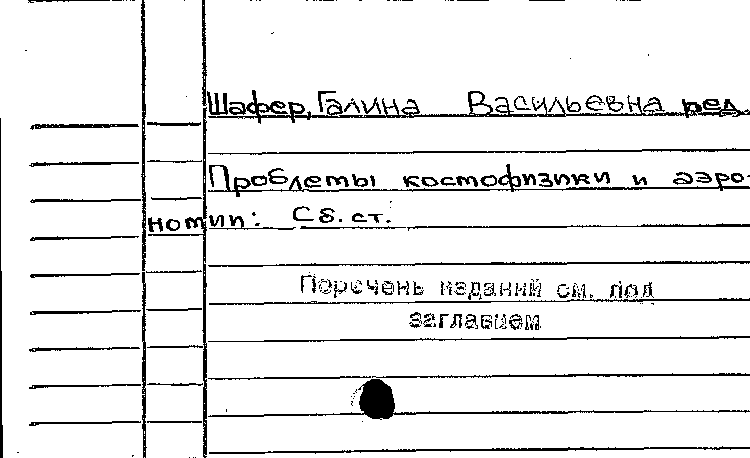 Шафер, Галина Васильевна ред.
Проблемы космофизики и аэро-
номии: Сб. ст.
Перечень изданий см. под
заглавием